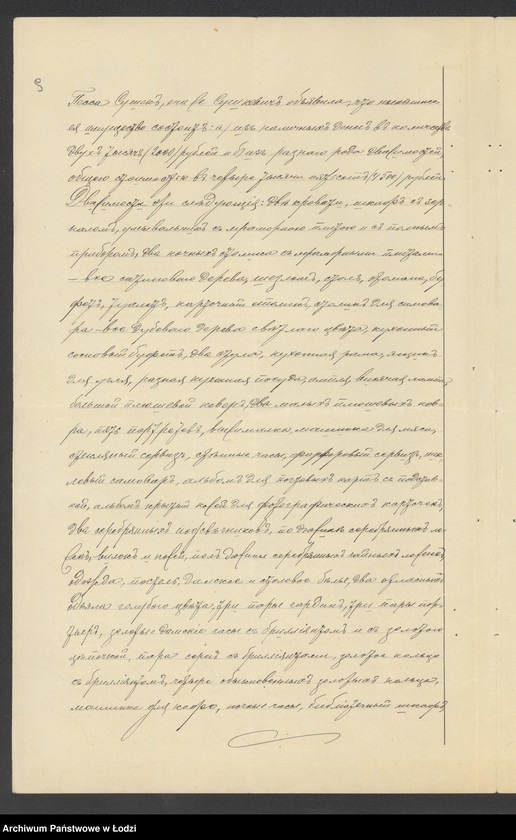 Гесса Сушекъ, она же Сушковичъ объявила, что настоящее
ея имущество состоитъ: а/ изъ наличныхъ денегъ въ количествѣ
двухъ тысячъ /2000/ рублей и б/ изъ разнаго рода движимостей,
общею стоимостью въ четыре тысячи пятьсотъ /4500/ рублей.
Движимости эти слѣдующія: двѣ кровати, шкафъ съ зер-
каломъ, умывальникъ съ мраморною плитою и съ полнымъ
приборомъ, два ночныхъ столика съ мраморными плитами
– все сатиноваго дерева, шезлонгъ, столъ, оттомана, бу-
фетъ, карточный столикъ, столикъ для самова-
ра – все дубоваго дерева свѣтлаго цвѣта, кухонный
сосновый буфетъ, два стула, кухонная рама, ящикъ
для угля, разная кухонная посуда, висячая лампа,
большой плюшевой коверъ, два малыхъ плюшевыхъ ков-
ра, пять портретовъ, машинка для мяса,
стеклянный сервизъ, стѣнные часы, фарфоровый сервизъ, ни-
левый самоваръ, альбомъ для почтовыхъ картъ съ
альбомъ для фотографическихъ карточекъ,
два серебрянныхъ подсвѣчниковъ, по дюжинѣ серебрянныхъ ло-
жекъ, вилокъ и ножей, полъ дюжины серебрянныхъ чайныхъ ложекъ,
одежда, постель, дамское и столовое бѣлье, два атласныхъ
одѣяла голубого цвѣта, три пары гардинъ, три пары пор-
тьеръ, золотые дамскіе часы съ брилліянтомъ и съ золотою
цѣпочкой, пара серегъ съ брилліянтами, золотое кольцо
съ брилліянтомъ, четыре обыкновенныхъ золотыхъ кольца,
машинка для кофе, ночные часы, библіотечный шкафъ,
Archiwum Państwowe w Łodzi